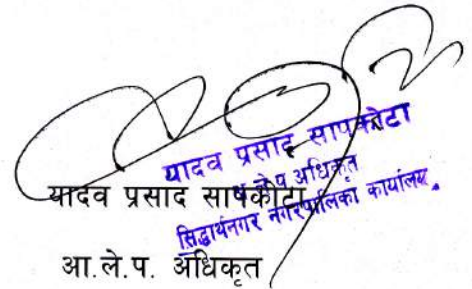 यादव प्रसाद सापकोटा
आ.ले.प अधिकृत
सिद्धार्थनगर नगरपालिका कार्यालय
यादव प्रसाद सापकोटा
आ.ले.प. अधिकृत